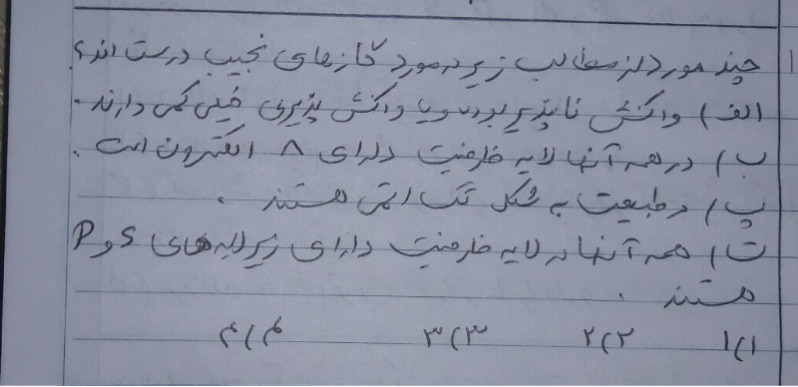 ۱ چند مورد از مطالب زیر در مورد گازهای نجیب درست اند؟
الف) واکنش ناپذیر بوده و یا واکنش پذیری خیلی کمی دارند.
ب) در همه آنها لایه ظرفیت دارای ۸ الکترون است.
پ) در طبیعت به شکل تک اتمی هستند.
ت) همه آنها در لایه ظرفیت دارای زیرلایه های s و p
هستند.
۱) ۱ ۲) ۲ ۳) ۳ ۴) ۴